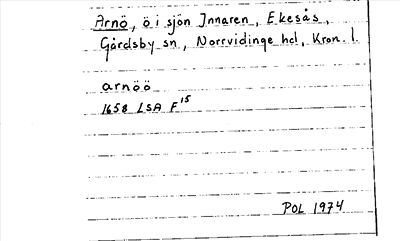 Arnö, ö i sjön Innaren, Ekesås,
Gårdsby sn, Norrvidinge hd, Kron. l.
arnöö
1658 LSA F¹⁵
POL 1974